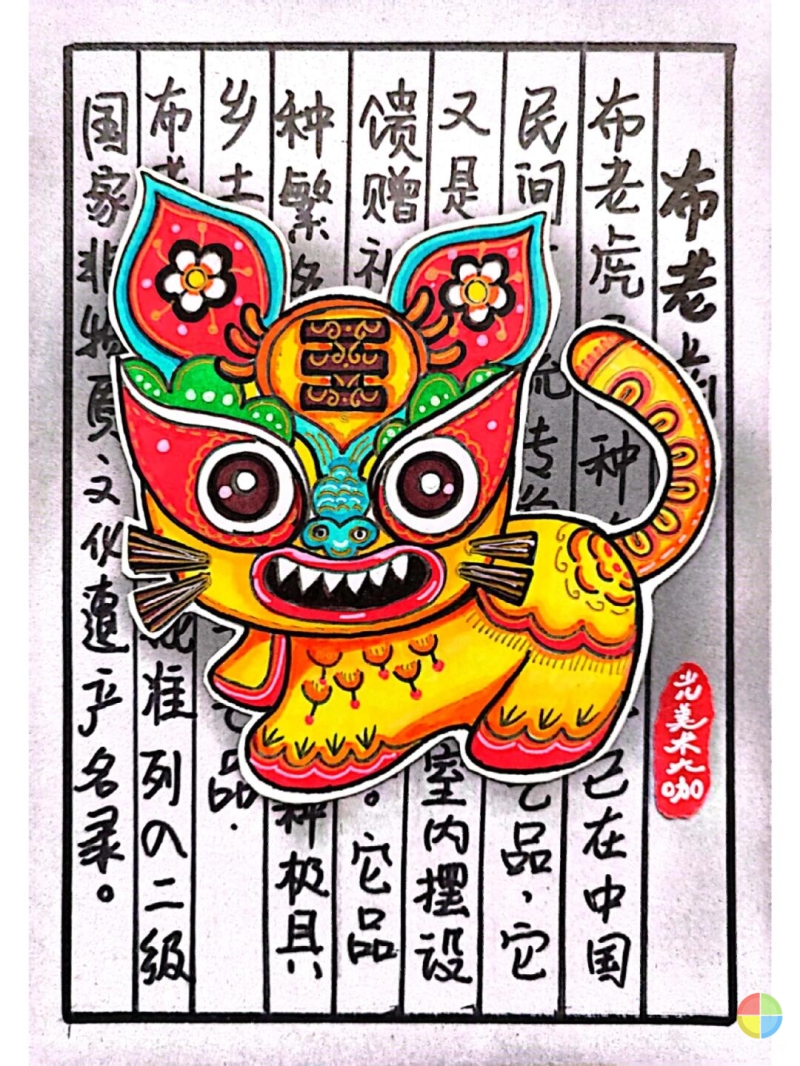 布老
布老虎 种 已在中国
民间 流传 品，它
又是 室内摆设
馈赠礼 。它品
种繁 种极具
乡土 品.
布 准列入二级
国家非物质文化遗产名录。
美术大咖